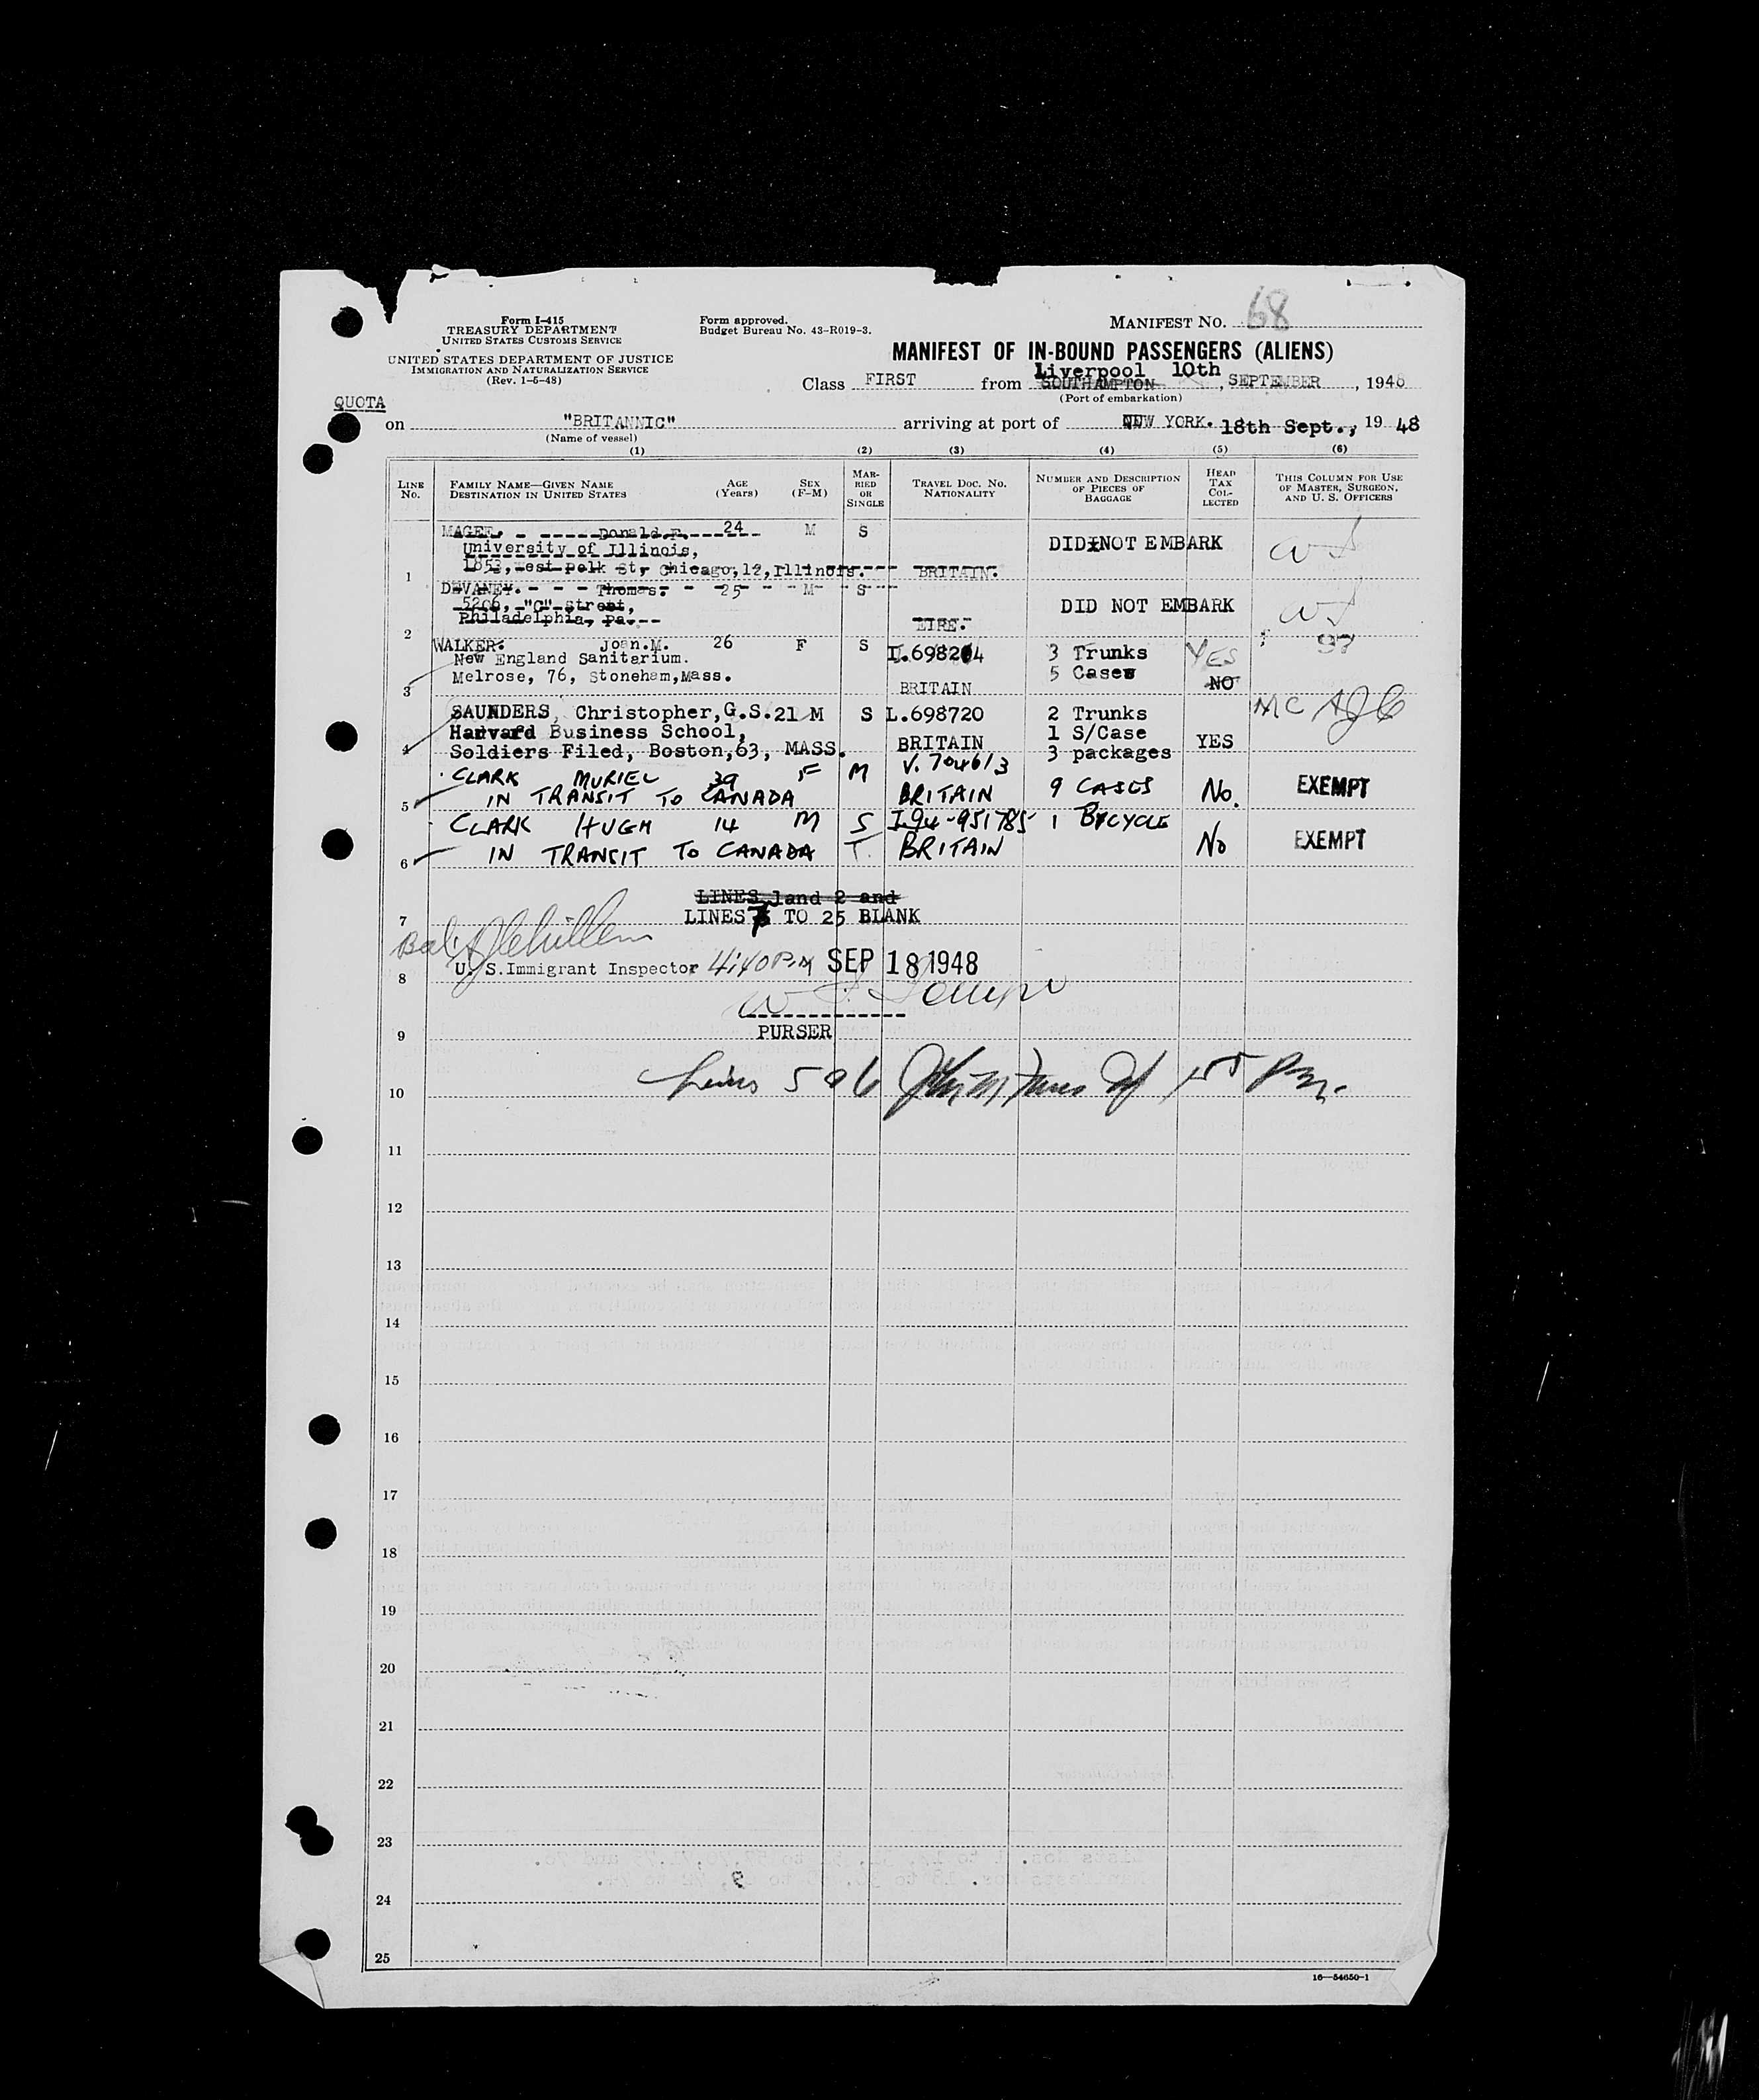 Form I-415
TREASURY DEPARTMENT
UNITED STATES CUSTOMS SERVICE
UNITED STATES DEPARTMENT OF JUSTICE
IMMIGRATION AND NATURALIZATION SERVICE
(Rev. 1-5-48)
Form approved.
Budget Bureau No. 43-R019-3.
MANIFEST NO. 68
MANIFEST OF IN-BOUND PASSENGERS (ALIENS)
Liverpool 10th
Class FIRST from SOUTHAMPTON, SEPTEMBER, 1948
(Port of embarkation)
QUOTA
on "BRITANNIC" arriving at port of NEW YORK. 18th Sept., 19 48
(Name of vessel)
(1) (2) (3) (4) (5) (6)
LINE No.
FAMILY NAME—GIVEN NAME
DESTINATION IN UNITED STATES
AGE (Years)
SEX (F-M)
MARRIED OR SINGLE
TRAVEL DOC. NO.
NATIONALITY
NUMBER AND DESCRIPTION
OF PIECES OF
BAGGAGE
HEAD
TAX
COLLECTED
THIS COLUMN FOR USE
OF MASTER, SURGEON,
AND U. S. OFFICERS
MAGEE. Donald F. 24 M S
University of Illinois, DID NOT EMBARK
1 1853, West Polk St, Chicago, 12, Illinois. BRITAIN.
DEVANEY. Thomas. 25 M S
5206, "C" Street, DID NOT EMBARK
2 Philadelphia, Pa. EIRE.
WALKER. Joan.M. 26 F S
New England Sanitarium. 3 Trunks YES
Melrose, 76, Stoneham, Mass. 5 Cases NO
3 BRITAIN
SAUNDERS, Christopher, G.S. 21 M S L.698720 2 Trunks MC
Harvard Business School, 1 S/Case
4 Soldiers Filed, Boston, 63, MASS. BRITAIN 3 packages YES
CLARK MURIEL 39 F M V. 704613
5 IN TRANSIT TO CANADA BRITAIN 9 CASES No. EXEMPT
CLARK HUGH 14 M S I94-951785 1 BYCYCLE
6 IN TRANSIT TO CANADA T. BRITAIN No EXEMPT
LINES 1 and 2 and
7 LINES 7 TO 25 BLANK
8 U. S. Immigrant Inspector 4:40 PM SEP 18 1948
9 PURSER
10 Lines 5 & 6
11
12
13
14
15
16
17
18
19
20
21
22
23
24
25
16—54650-1